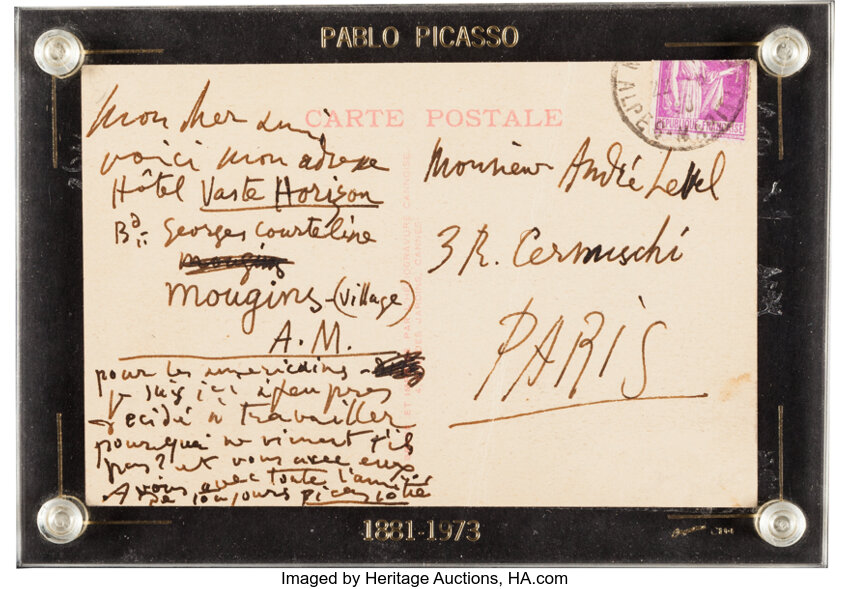 PABLO PICASSO
CARTE POSTALE
mon cher ami
voici mon adresse
Hôtel Vaste Horison
Bd Georges Courteline
Mougins-(Village)
A.M.
pour les americains
je suis ici à peu pres
decidé à travailler
pourquoi ne vienent t'ils
pas? et vous avec eux
A vous avec toute l'amitié
de toujours Picasso
Monsieur André Level
3 R. Cernuschi
PARIS
1881-1973
Imaged by Heritage Auctions, HA.com